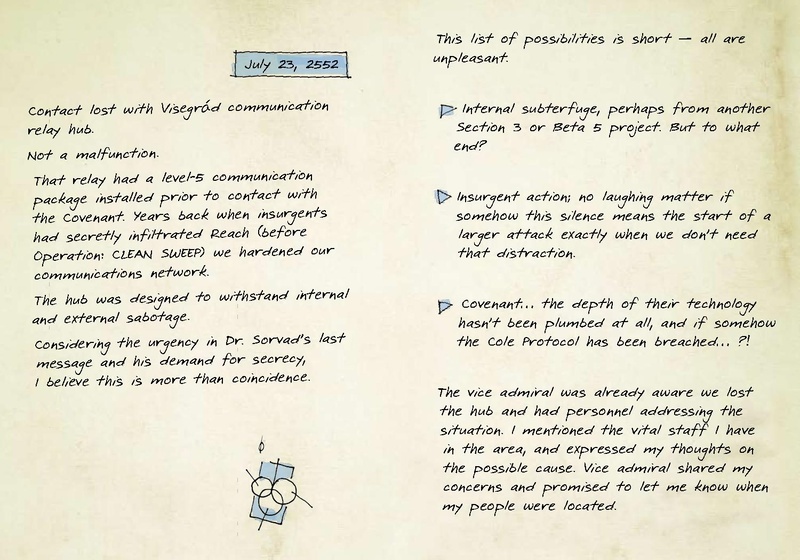 July 23, 2552
Contact lost with Visegrád communication
relay hub.
Not a malfunction.
That relay had a level-5 communication
package installed prior to contact with
the Covenant. Years back when insurgents
had secretly infiltrated Reach (before
Operation: CLEAN SWEEP) we hardened our
communications network.
The hub was designed to withstand internal
and external sabotage.
Considering the urgency in Dr. Sorvad's last
message and his demand for secrecy,
I believe this is more than coincidence.
This list of possibilities is short — all are
unpleasant.
Internal subterfuge, perhaps from another
Section 3 or Beta 5 project. But to what
end?
Insurgent action; no laughing matter if
somehow this silence means the start of a
larger attack exactly when we don't need
that distraction.
Covenant... the depth of their technology
hasn't been plumbed at all, and if somehow
the Cole Protocol has been breached... ?!
The vice admiral was already aware we lost
the hub and had personnel addressing the
situation. I mentioned the vital staff I have
in the area, and expressed my thoughts on
the possible cause. Vice admiral shared my
concerns and promised to let me know when
my people were located.